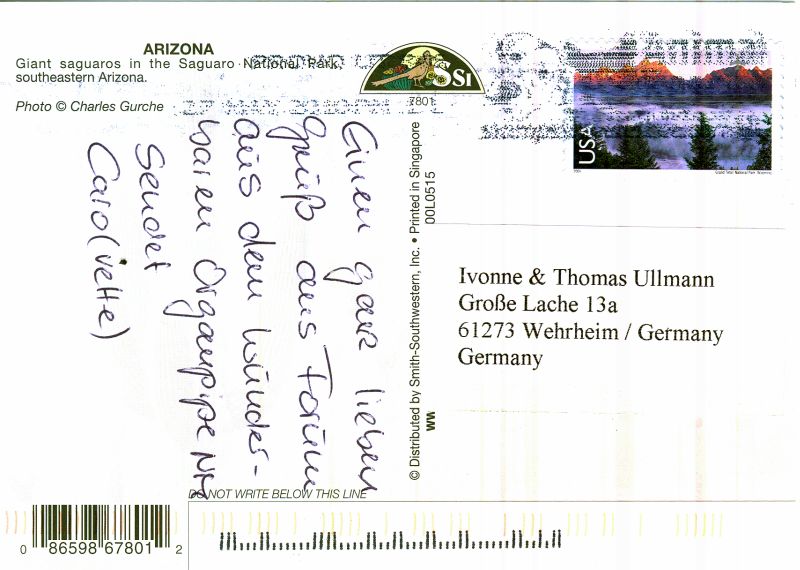 ARIZONA
Giant saguaros in the Saguaro National Park,
southeastern Arizona.
Photo © Charles Gurche
SSI
7801
USA
Einen ganz lieben
Gruß ans Forum
aus dem wunder-
baren Organpipe NM
sendet
Caro(vette)
© Distributed by Smith-Southwestern, Inc. • Printed in Singapore
00L0515
Ivonne & Thomas Ullmann
Große Lache 13a
61273 Wehrheim / Germany
Germany
DO NOT WRITE BELOW THIS LINE
0 86598 67801 2